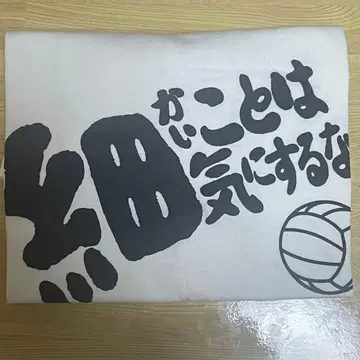 細かいことは
気にするな